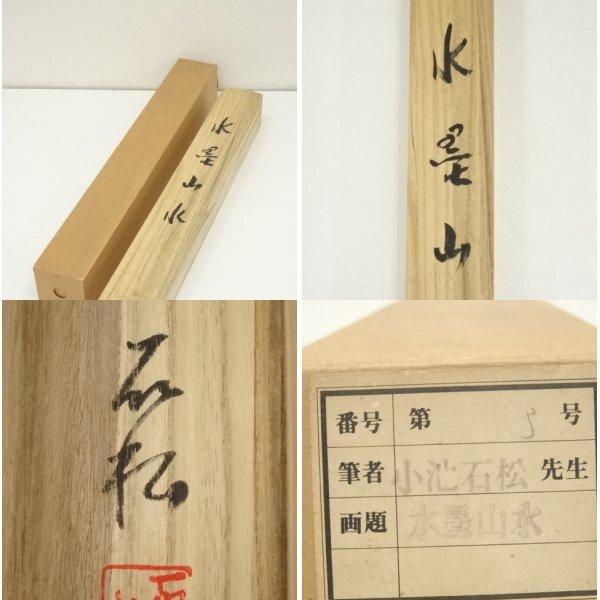 水墨山水
水墨山
石松
番号 第 号
筆者 小池石松 先生
画題 水墨山水